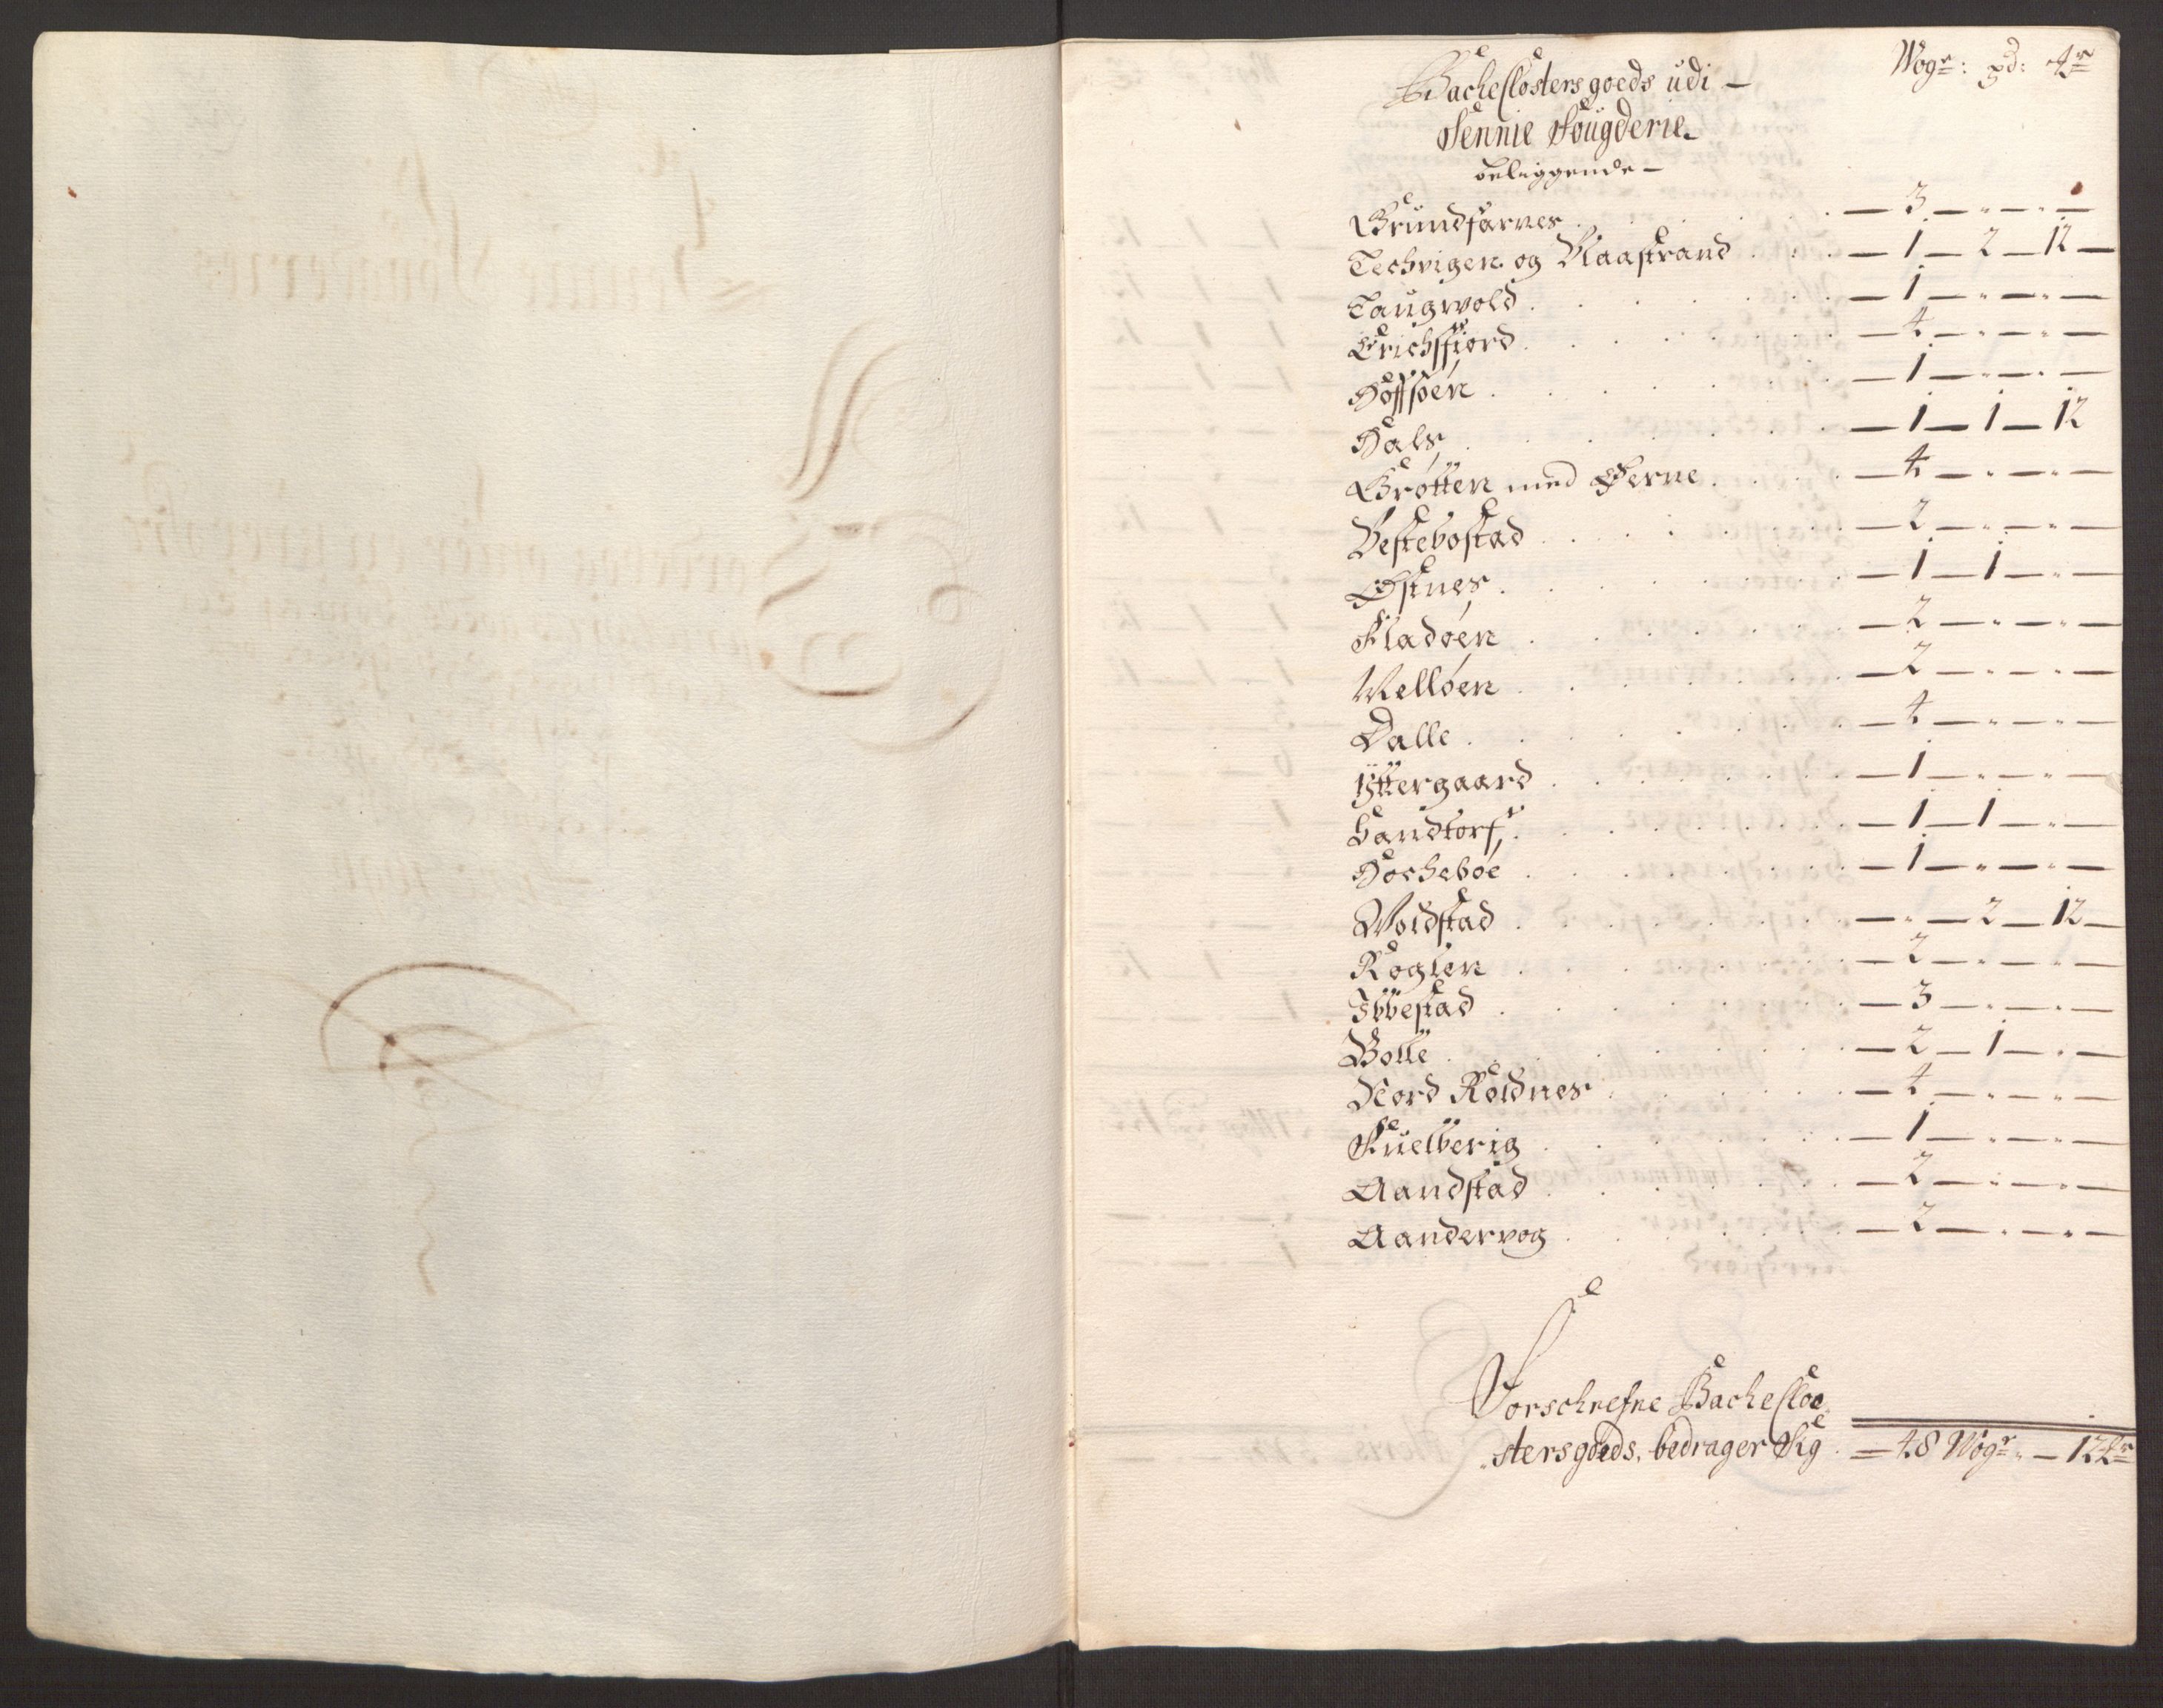 Wogr: pd: ℔r
Bacheclosters goeds udi –
Sennie Fougderie
beliggende –
Grundfarnes . . . — 3 — „ — „ —
Techvigen og Raastrand . . . — 1 — 2 — 12 —
Taugwold . . . — 1 — „ — „ —
Erichsfiord . . . — 4 — „ — „ —
Hoffsøen . . . — 1 — „ — „ —
Hals . . . — 1 — 1 — 12
Grøtten med Øerne . . . — 4 — „ — „ —
Vestebostad . . . — 2 — „ — „ —
Østnes . . . — 1 — 1 — „ —
Fladøen . . . — 2 — „ — „ —
Welløen . . . — 2 — „ — „ —
Dalle . . . — 4 — „ — „ —
Yttergaard . . . — 1 — „ — „ —
Sandtorf . . . — 1 — 1 — „ —
Hochebøe . . . — 1 — „ — „ —
Woldstad . . . — „ — 2 — 12 —
Roglen . . . — 2 — „ — „ —
Ibbestad . . . — 3 — „ — „ —
Bolle . . . — 2 — 1 — „ —
Nord Roldnes . . . — 4 — „ — „ —
Fuelberig . . . — 1 — „ — „ —
Aandstad . . . — 2 — „ — „ —
Aandervog . . . — 2 — „ — „ —
Forschrefne Bachecloe
stersgoeds, bedrager Sig — 48 Wogr „ — 12 ℔r